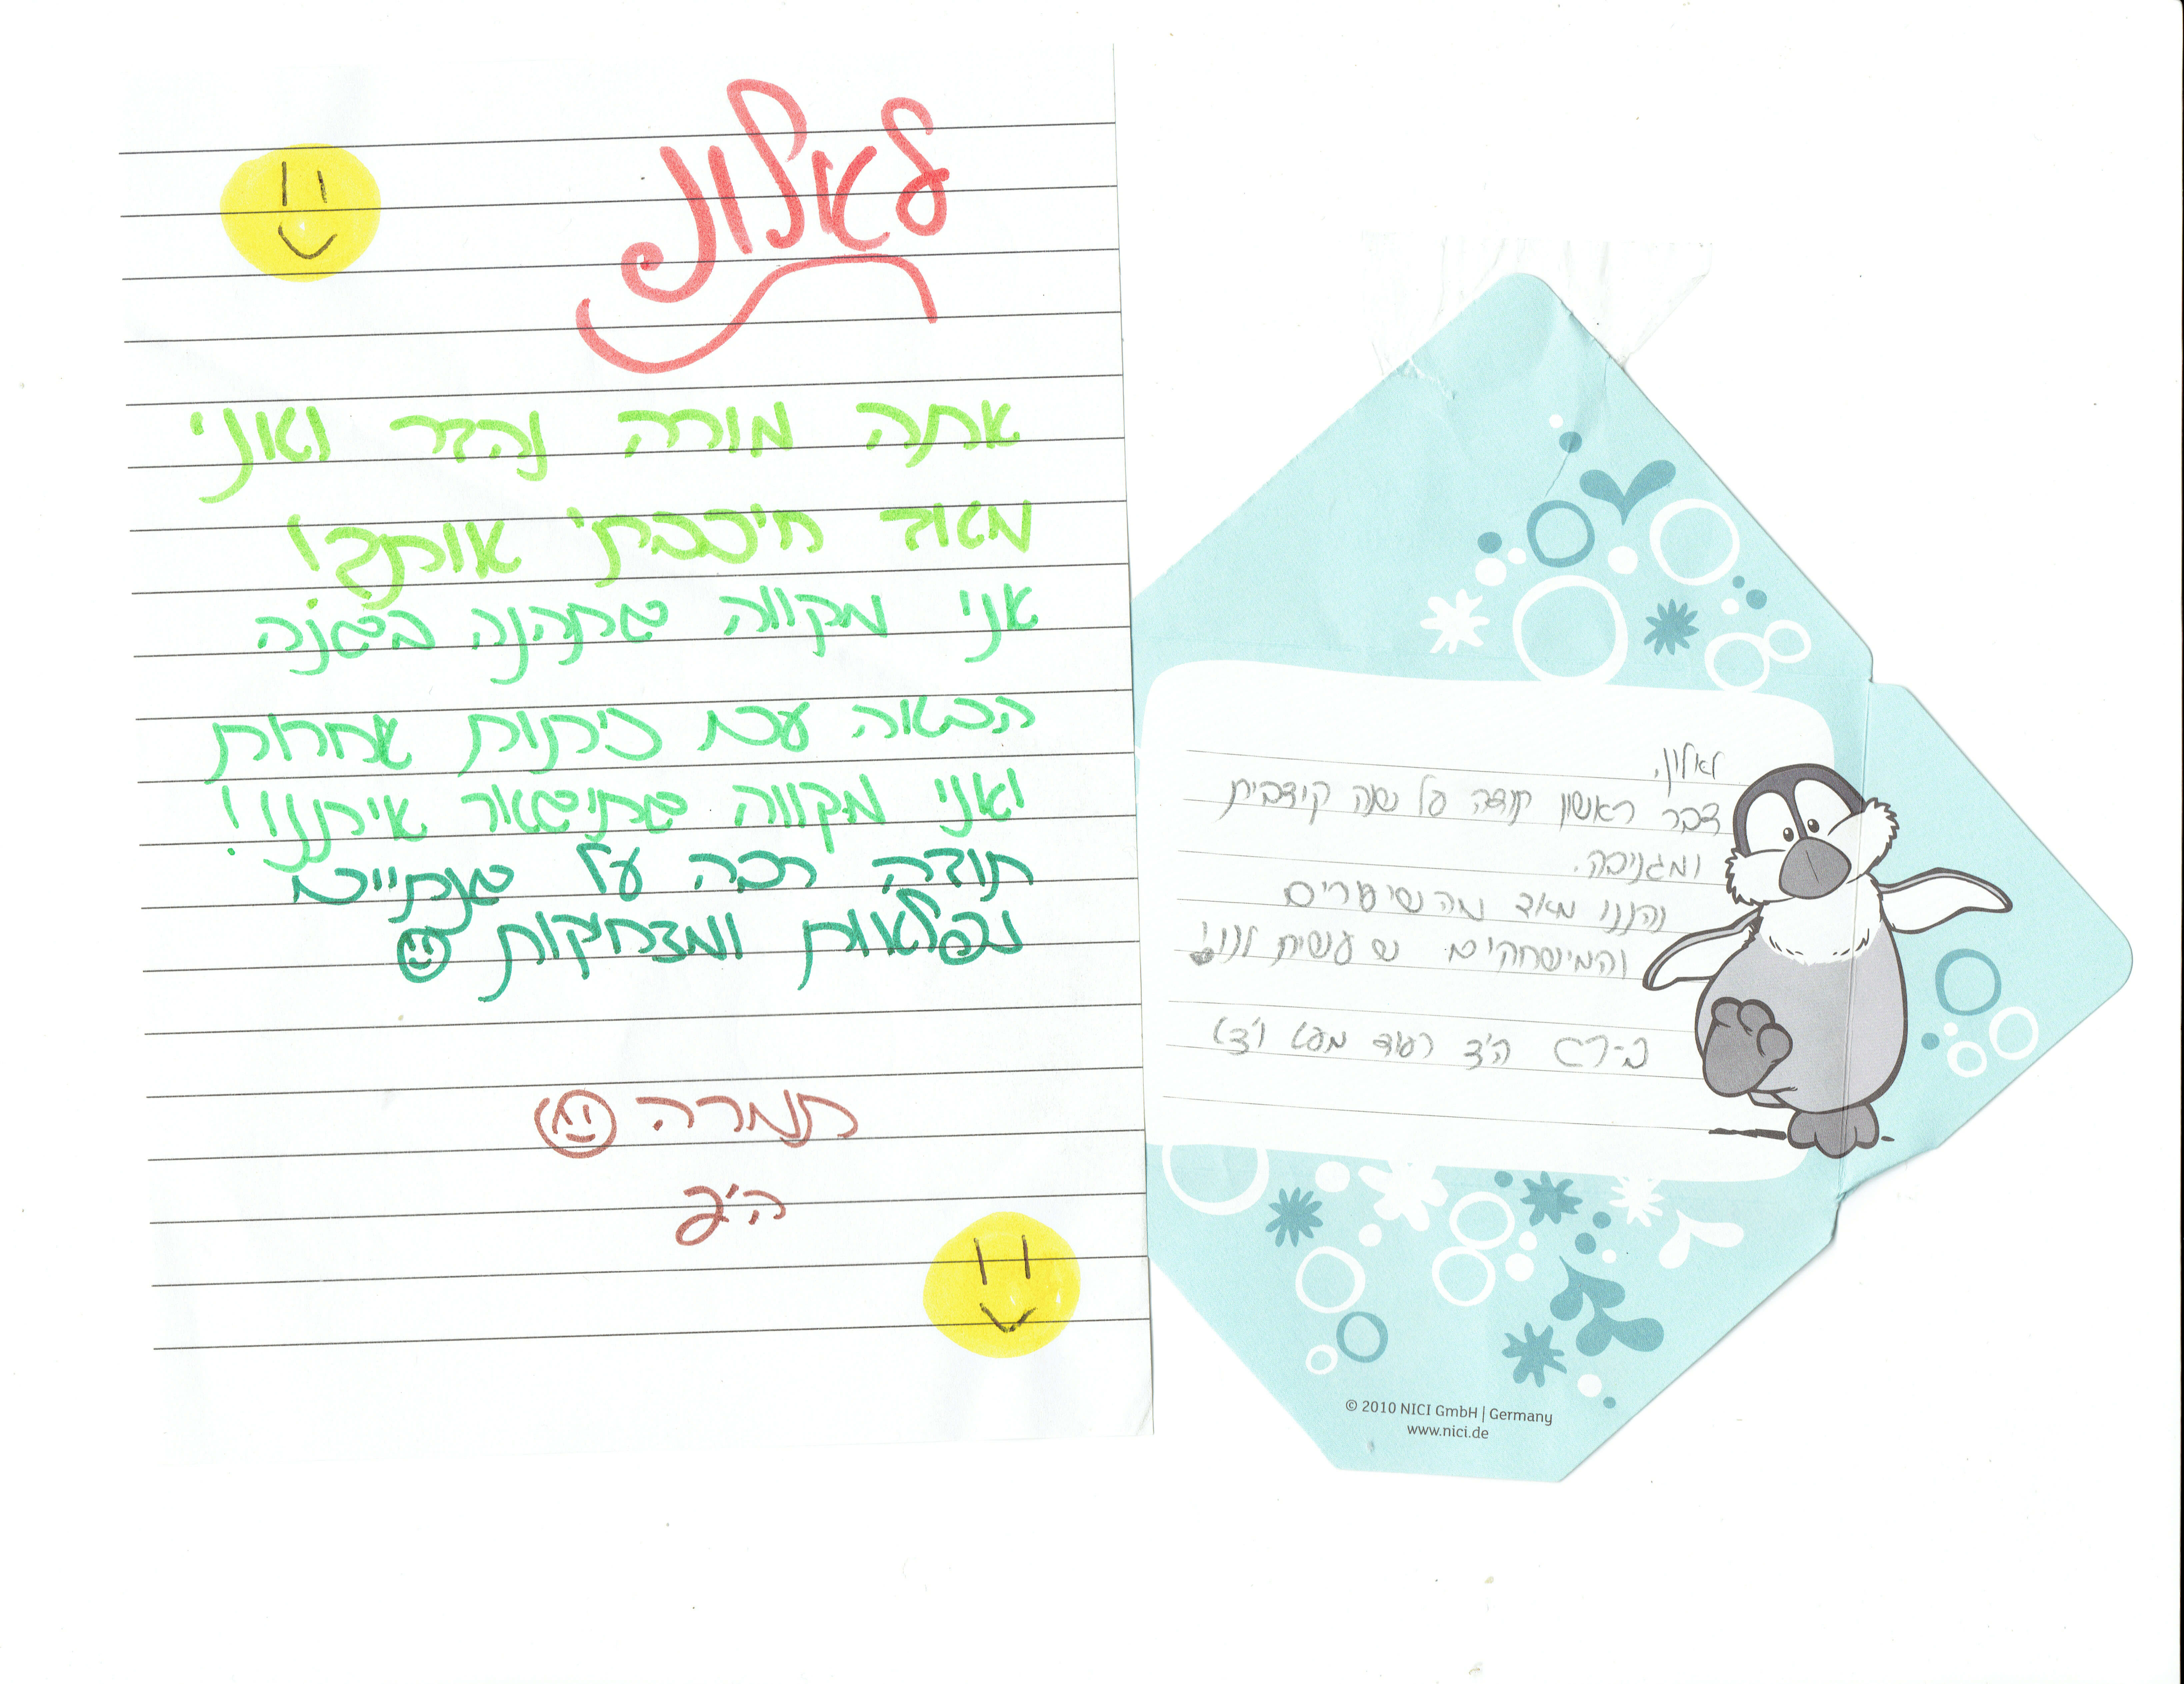 לאלון
אתה מורה נהדר ואני
מאוד חיבבתי אותך!
אני מקווה שתהנה בשנה
הבאה עם כיתות אחרות
ואני מקווה שתישאר איתנו!
תודה רבה על שנתיים
נפלאות ומצחיקות
תמרה
ה'ג
לאלון,
דבר ראשון תודה על שנה קיצבית
ומגניבה.
נהננו מאוד מהשיעורים
והמישחקים שעשית לנו!
מ- ה'צ ועוד מעט ו'צ)
© 2010 NICI GmbH | Germany
www.nici.de